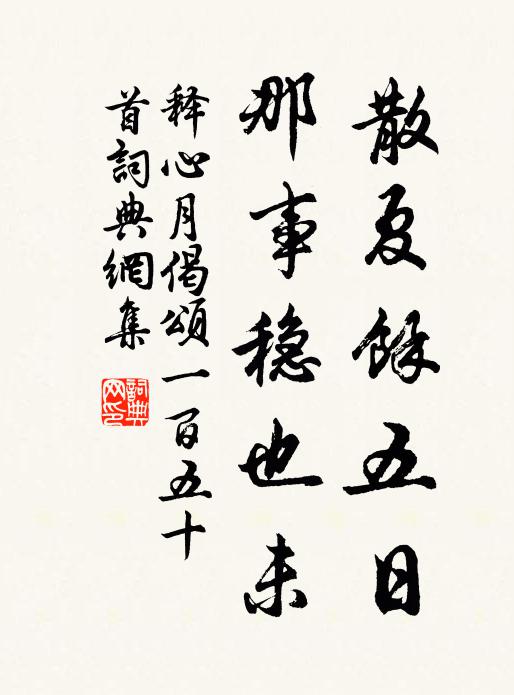 散夏餘五日
那事穩也未
释心月偈頌一百五十
首詞典網集
詞典网印